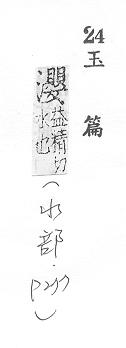 24
玉篇
瀴
益精切
水也
（水部·）